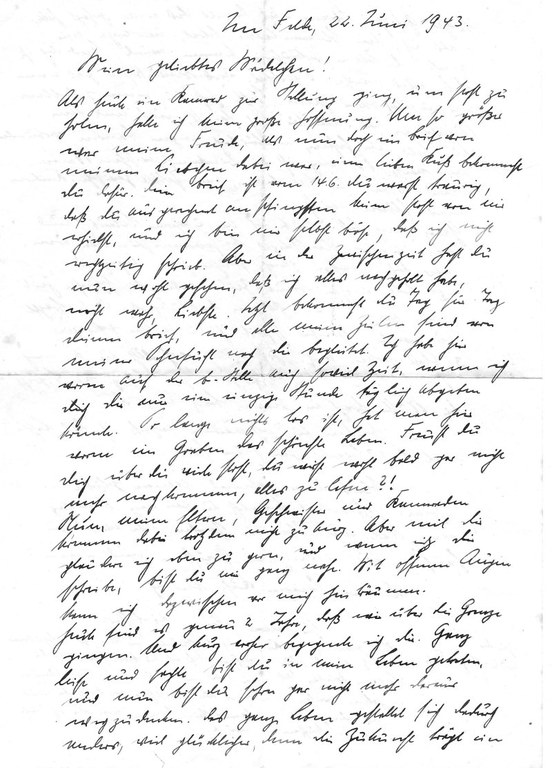 Im Felde, 22. Juni 1943.
Mein geliebtes Mädelchen!
Als heute ein Kamerad zur Stellung ging, um Post zu
holen, hatte ich keine große Hoffnung. Um so größer
war meine Freude, als nun doch ein Brief von
meinem Liebchen dabei war, einen lieben Kuß bekommst
du dafür. Dein Brief ist vom 14.6. Du warst traurig,
daß du ausgerechnet an Pfingsten keine Post von mir
erhieltst, und ich bin mir selbst böse, daß ich nicht
rechtzeitig schrieb. Aber in der Zwischenzeit hast du
nun wohl gesehen, daß ich alles nachgeholt habe,
nicht wahr, Liebste. Jetzt bekommst du Tag für Tag
deinen Brief, und alle meine Zeilen sind von
meiner Sehnsucht nach dir begleitet. Ich hab hier
vorne auf der B-Stelle auch soviel Zeit, wenn ich
dir nur eine einzige Stunde täglich abgeben
könnte. So lange nichts los ist, hat man hier
vorne im Graben das schönste Leben. Freust du
dich über die viele Post, du wirst wohl bald gar nicht
mehr nachkommen, alles zu lesen?!
Nun, meine Eltern, Geschwister und Kameraden
kommen dabei trotzdem nicht zu kurz. Aber mit dir
plaudere ich eben zu gern, und wenn ich dir
schreibe, bist du mir ganz nahe. Mit offenen Augen
kann ich dazwischen vor mich hinträumen.
Heute sind es genau 2 Jahre, daß wir über die Grenze
gingen. Und kurz vorher begegnete ich dir. Ganz
leise und sachte bist du in mein Leben getreten,
und nun bist du schon gar nicht mehr daraus
wegzudenken. Das ganze Leben gestaltet sich dadurch
anders, viel glücklicher, denn die Zukunft trägt ein